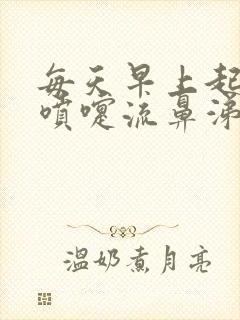 每天早上起
喷嚏流鼻涕
温奶煮月亮